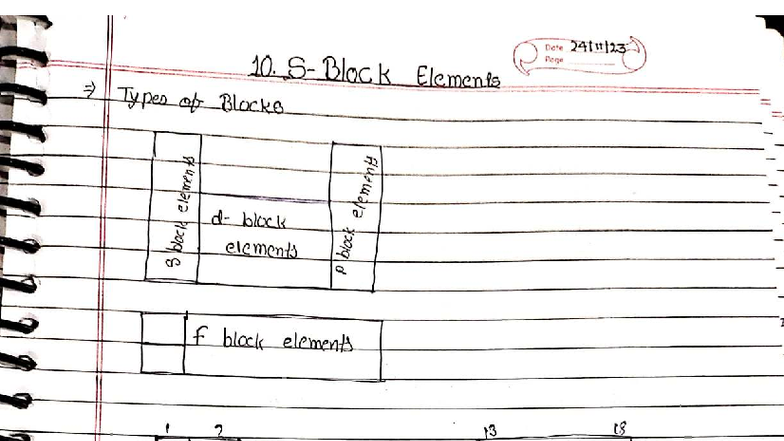 Date 24/11/23
Page
10. S-Block Elements
⇒ Types of Blocks
S block elements
d- block
elements
p block elements
f block elements
1 2 13 18